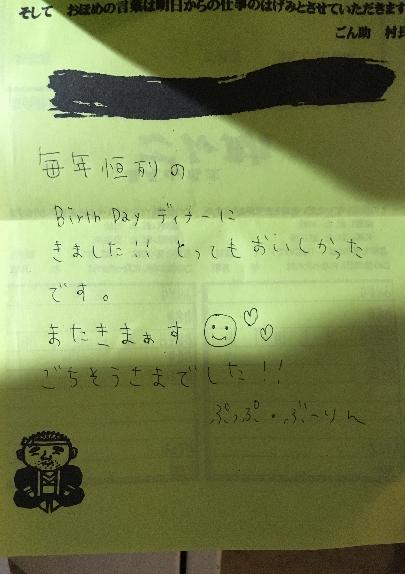 そして おほめの言葉は明日からの仕事のはげみとさせていただきます
ごん助 村長
毎年恒例の
Birth Day ディナーに
きました!! とってもおいしかった
です。
またきまぁす
ごちそうさまでした!!
ぷっぷ・ぶーりん